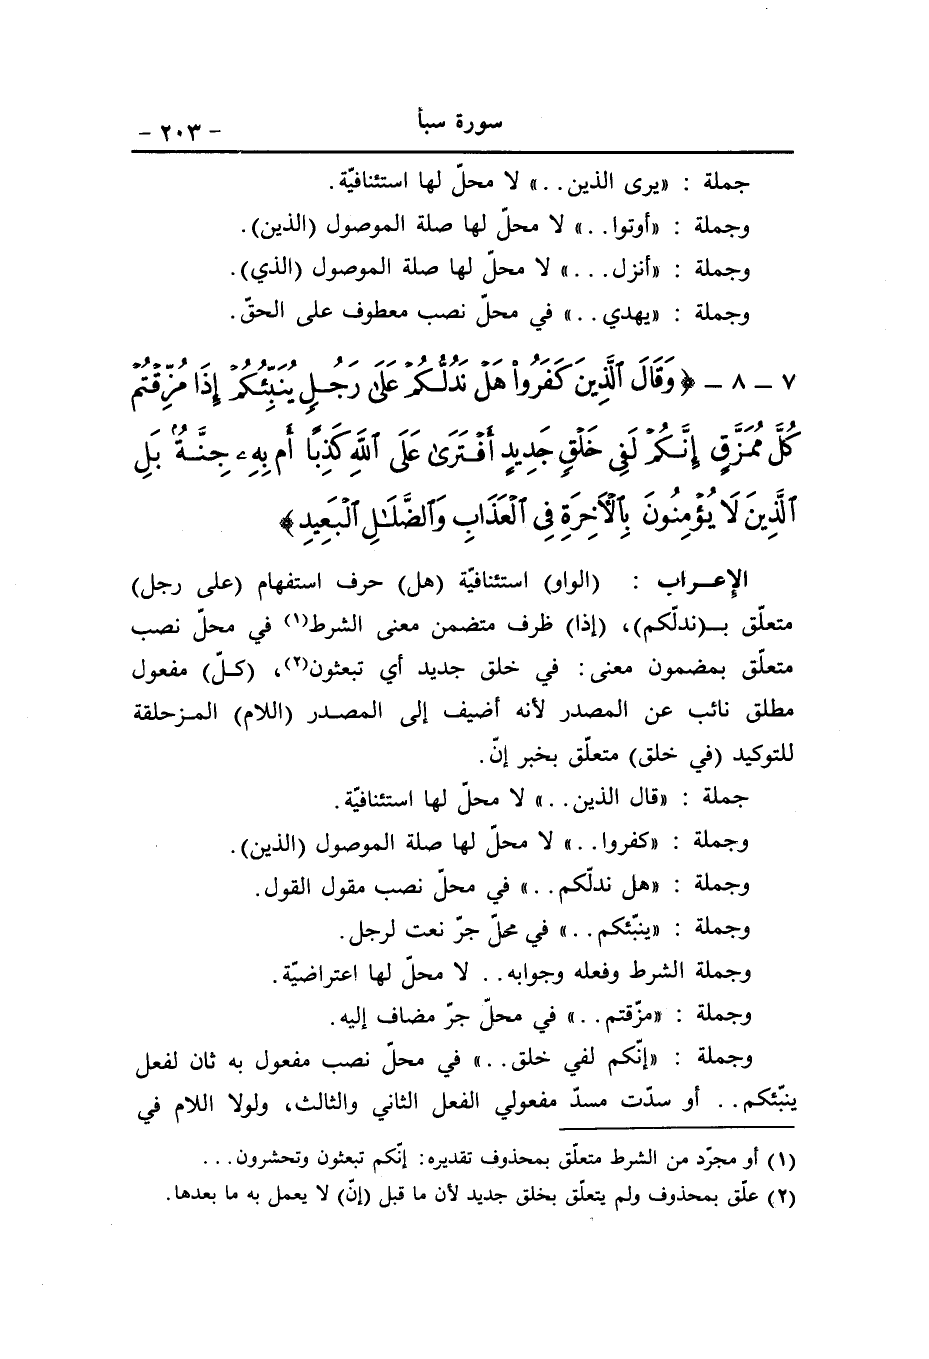 سورة سبأ
- ٢٠٣ -
جملة : «يرى الذين . .» لا محلّ لها استئنافيّة .
وجملة : «أوتوا . .» لا محلّ لها صلة الموصول (الذين) .
وجملة : «أنزل . . .» لا محلّ لها صلة الموصول (الذي) .
وجملة : «يهدي . .» في محلّ نصب معطوف على الحقّ .
٧ - ٨ - ﴿وَقَالَ ٱلَّذِينَ كَفَرُوا۟ هَلْ نَدُلُّكُمْ عَلَىٰ رَجُلٍ يُنَبِّئُكُمْ إِذَا مُزِّقْتُمْ
كُلَّ مُمَزَّقٍ إِنَّكُمْ لَفِى خَلْقٍ جَدِيدٍ أَفْتَرَىٰ عَلَى ٱللَّهِ كَذِبًا أَم بِهِۦ جِنَّةٌۢ بَلِ
ٱلَّذِينَ لَا يُؤْمِنُونَ بِٱلْأَخِرَةِ فِى ٱلْعَذَابِ وَٱلضَّلَـٰلِ ٱلْبَعِيدِ﴾
الإعــراب : (الواو) استئنافيّة (هل) حرف استفهام (على رجل)
متعلّق بــ(ندلّكم)، (إذا) ظرف متضمن معنى الشرط(١) في محلّ نصب
متعلّق بمضمون معنى : في خلق جديد أي تبعثون(٢)، (كـلّ) مفعول
مطلق نائب عن المصدر لأنه أضيف إلى المصـدر (اللام) المـزحلقة
للتوكيد (في خلق) متعلّق بخبر إنّ .
جملة : «قال الذين . .» لا محلّ لها استئنافيّة .
وجملة : «كفروا . .» لا محلّ لها صلة الموصول (الذين) .
وجملة : «هل ندلّكم . .» في محلّ نصب مقول القول .
وجملة : «ينبّئكم . .» في محلّ جرّ نعت لرجل .
وجملة الشرط وفعله وجوابه . . لا محلّ لها اعتراضيّة .
وجملة : «مزّقتم . .» في محلّ جرّ مضاف إليه .
وجملة : «إنّكم لفي خلق . .» في محلّ نصب مفعول به ثان لفعل
ينبّئكم . . أو سدّت مسدّ مفعولي الفعل الثاني والثالث، ولولا اللام في
(١) أو مجرّد من الشرط متعلّق بمحذوف تقديره : إنّكم تبعثون وتحشرون . . .
(٢) علّق بمحذوف ولم يتعلّق بخلق جديد لأن ما قبل (إنّ) لا يعمل به ما بعدها .